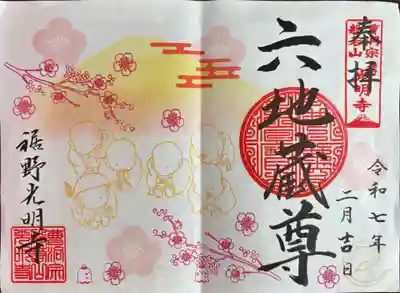 奉拝
六地蔵尊
令和七年
二月吉日
裾野光明寺